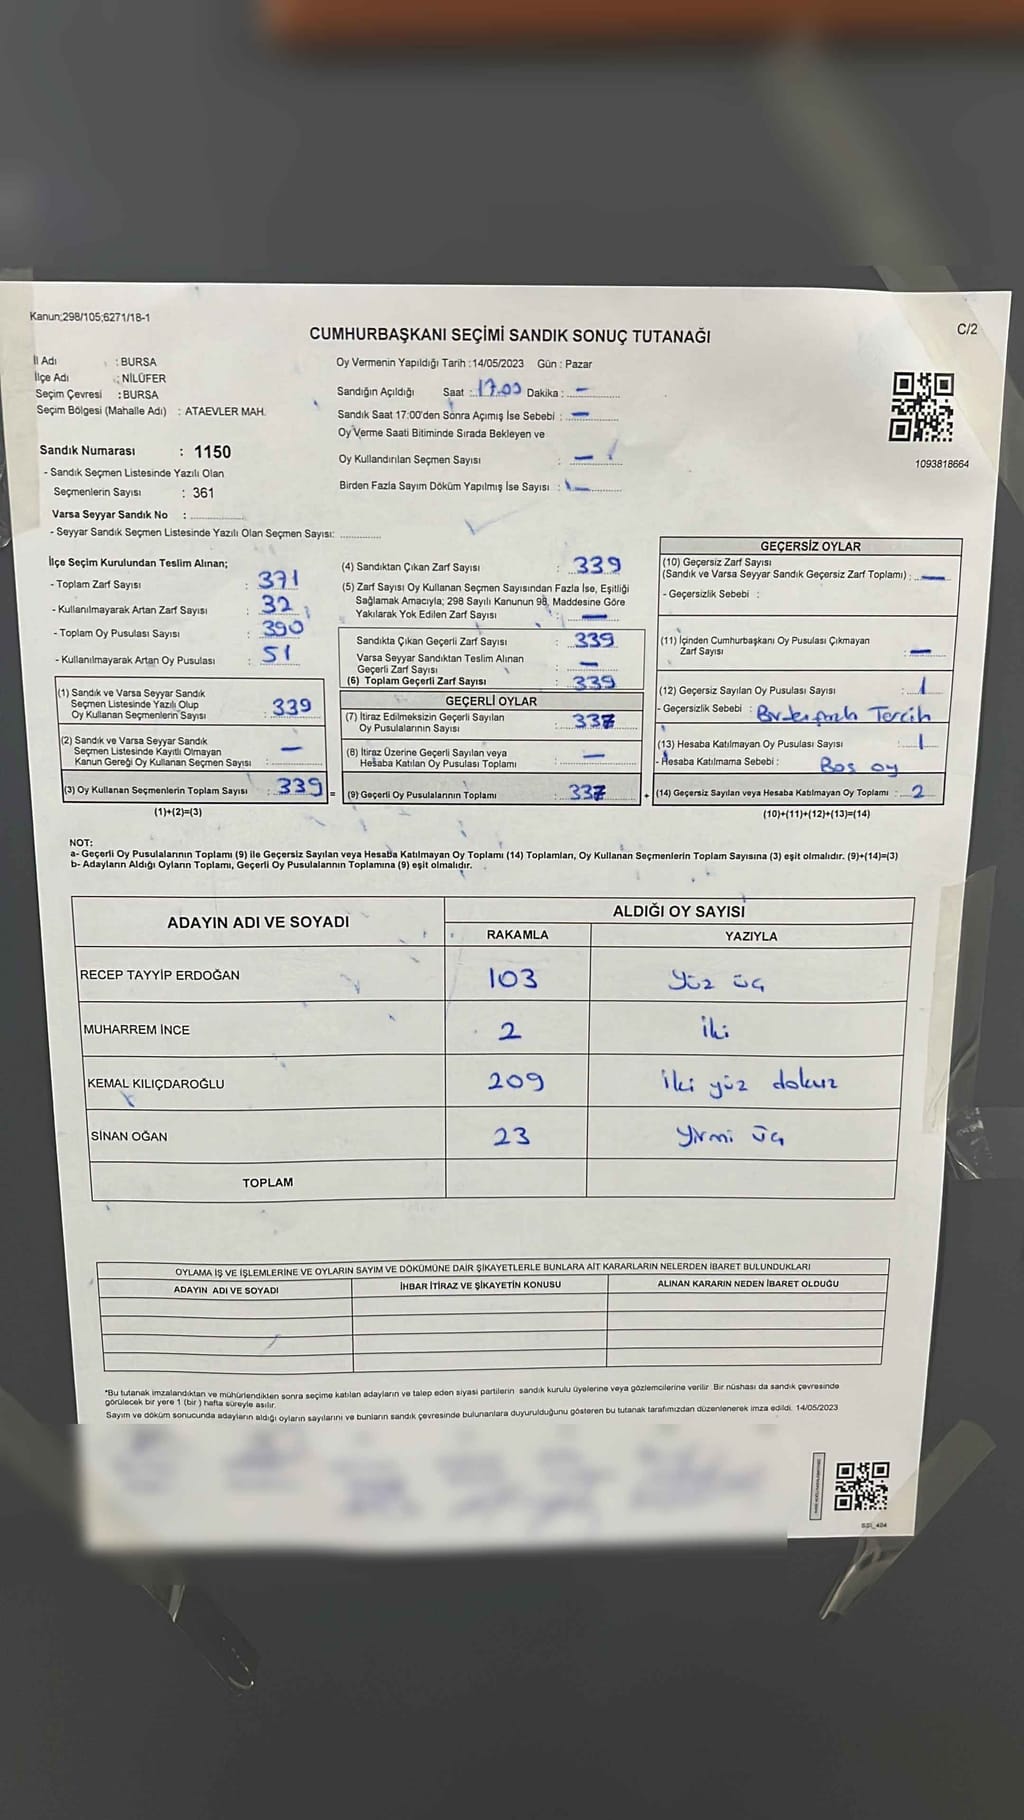 Kanun;298/105;6271/18-1
C/2
CUMHURBAŞKANI SEÇİMİ SANDIK SONUÇ TUTANAĞI
İl Adı : BURSA
İlçe Adı : NİLÜFER
Seçim Çevresi : BURSA
Seçim Bölgesi (Mahalle Adı) : ATAEVLER MAH.
Oy Vermenin Yapıldığı Tarih : 14/05/2023 Gün : Pazar
Sandığın Açıldığı Saat : 17.00 Dakika : —
Sandık Saat 17:00'den Sonra Açımış İse Sebebi : —
Oy Verme Saati Bitiminde Sırada Bekleyen ve
Oy Kullandırılan Seçmen Sayısı : —
Birden Fazla Sayım Döküm Yapılmış İse Sayısı : —
1093818664
Sandık Numarası : 1150
- Sandık Seçmen Listesinde Yazılı Olan
Seçmenlerin Sayısı : 361
Varsa Seyyar Sandık No :
- Seyyar Sandık Seçmen Listesinde Yazılı Olan Seçmen Sayısı:
İlçe Seçim Kurulundan Teslim Alınan;
- Toplam Zarf Sayısı : 371
- Kullanılmayarak Artan Zarf Sayısı : 32
- Toplam Oy Pusulası Sayısı : 390
- Kullanılmayarak Artan Oy Pusulası : 51
(1) Sandık ve Varsa Seyyar Sandık
Seçmen Listesinde Yazılı Olup
Oy Kullanan Seçmenlerin Sayısı : 339
(2) Sandık ve Varsa Seyyar Sandık
Seçmen Listesinde Kayıtlı Olmayan
Kanun Gereği Oy Kullanan Seçmen Sayısı : —
(3) Oy Kullanan Seçmenlerin Toplam Sayısı : 339 =
(1)+(2)=(3)
(4) Sandıktan Çıkan Zarf Sayısı : 339
(5) Zarf Sayısı Oy Kullanan Seçmen Sayısından Fazla İse, Eşitliği
Sağlamak Amacıyla; 298 Sayılı Kanunun 98. Maddesine Göre
Yakılarak Yok Edilen Zarf Sayısı : —
Sandıkta Çıkan Geçerli Zarf Sayısı : 339
Varsa Seyyar Sandıktan Teslim Alınan
Geçerli Zarf Sayısı : —
(6) Toplam Geçerli Zarf Sayısı : 339
GEÇERLİ OYLAR
(7) İtiraz Edilmeksizin Geçerli Sayılan
Oy Pusulalarının Sayısı : 337
(8) İtiraz Üzerine Geçerli Sayılan veya
Hesaba Katılan Oy Pusulası Toplamı : —
(9) Geçerli Oy Pusulalarının Toplamı : 337 +
GEÇERSİZ OYLAR
(10) Geçersiz Zarf Sayısı
(Sandık ve Varsa Seyyar Sandık Geçersiz Zarf Toplamı) : —
- Geçersizlik Sebebi :
(11) İçinden Cumhurbaşkanı Oy Pusulası Çıkmayan
Zarf Sayısı : —
(12) Geçersiz Sayılan Oy Pusulası Sayısı : 1
- Geçersizlik Sebebi : Birden fazla Tercih
(13) Hesaba Katılmayan Oy Pusulası Sayısı : 1
- Hesaba Katılmama Sebebi : Boş oy
(14) Geçersiz Sayılan veya Hesaba Katılmayan Oy Toplamı : 2
(10)+(11)+(12)+(13)=(14)
NOT:
a- Geçerli Oy Pusulalarının Toplamı (9) ile Geçersiz Sayılan veya Hesaba Katılmayan Oy Toplamı (14) Toplamları, Oy Kullanan Seçmenlerin Toplam Sayısına (3) eşit olmalıdır. (9)+(14)=(3)
b- Adayların Aldığı Oyların Toplamı, Geçerli Oy Pusulalarının Toplamına (9) eşit olmalıdır.
ADAYIN ADI VE SOYADI
ALDIĞI OY SAYISI
RAKAMLA YAZIYLA
RECEP TAYYİP ERDOĞAN 103 Yüz üç
MUHARREM İNCE 2 İki
KEMAL KILIÇDAROĞLU 209 İki yüz dokuz
SİNAN OĞAN 23 Yirmi üç
TOPLAM
OYLAMA İŞ VE İŞLEMLERİNE VE OYLARIN SAYIM VE DÖKÜMÜNE DAİR ŞİKAYETLERLE BUNLARA AİT KARARLARIN NELERDEN İBARET BULUNDUKLARI
ADAYIN ADI VE SOYADI İHBAR İTİRAZ VE ŞİKAYETİN KONUSU ALINAN KARARIN NEDEN İBARET OLDUĞU
*Bu tutanak imzalandıktan ve mühürlendikten sonra seçime katılan adayların ve talep eden siyasi partilerin sandık kurulu üyelerine veya gözlemcilerine verilir. Bir nüshası da sandık çevresinde
görülecek bir yere 1 (bir) hafta süreyle asılır.
Sayım ve döküm sonucunda adayların aldığı oyların sayılarını ve bunların sandık çevresinde bulunanlara duyurulduğunu gösteren bu tutanak tarafımızdan düzenlenerek imza edildi. 14/05/2023